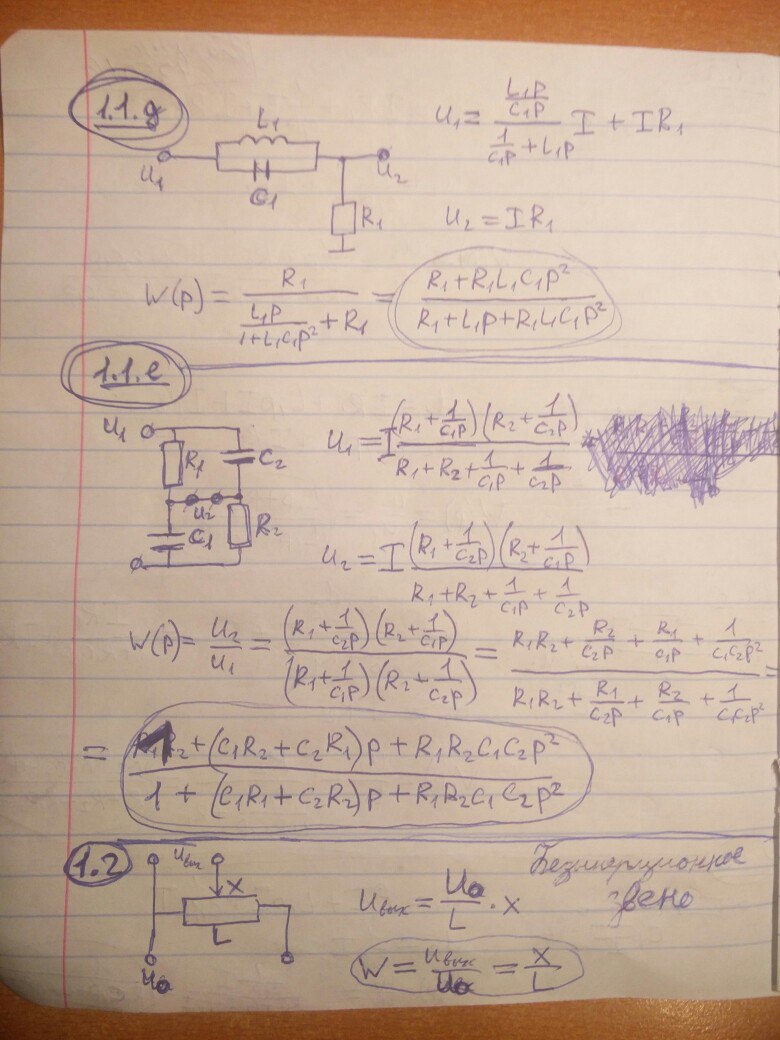 1.1.д
L₁
C₁
U₁
U₂
R₁
U₁ = (L₁p/C₁p)/(1/C₁p + L₁p) I + IR₁
U₂ = IR₁
W(p) = R₁/(L₁p/(1+L₁C₁p²) + R₁) = (R₁+R₁L₁C₁p²)/(R₁+L₁p+R₁L₁C₁p²)
1.1.е
U₁
R₁
C₂
U₂
C₁
R₂
U₁ = I (R₁ + 1/C₁p)(R₂ + 1/C₂p)/(R₁ + R₂ + 1/C₁p + 1/C₂p)
U₂ = I (R₁ + 1/C₂p)(R₂ + 1/C₁p)/(R₁ + R₂ + 1/C₁p + 1/C₂p)
W(p) = U₂/U₁ = (R₁ + 1/C₂p)(R₂ + 1/C₁p)/(R₁ + 1/C₁p)(R₂ + 1/C₂p) = (R₁R₂ + R₂/C₂p + R₁/C₁p + 1/C₁C₂p²)/(R₁R₂ + R₁/C₂p + R₂/C₁p + 1/C₁C₂p²) =
= (1 + (C₁R₂ + C₂R₁)p + R₁R₂C₁C₂p²)/(1 + (C₁R₁ + C₂R₂)p + R₁R₂C₁C₂p²)
1.2
Uвых
X
L
U₀
Uвых = U₀/L · X
W = Uвых/U₀ = X/L
Безынерционное
звено